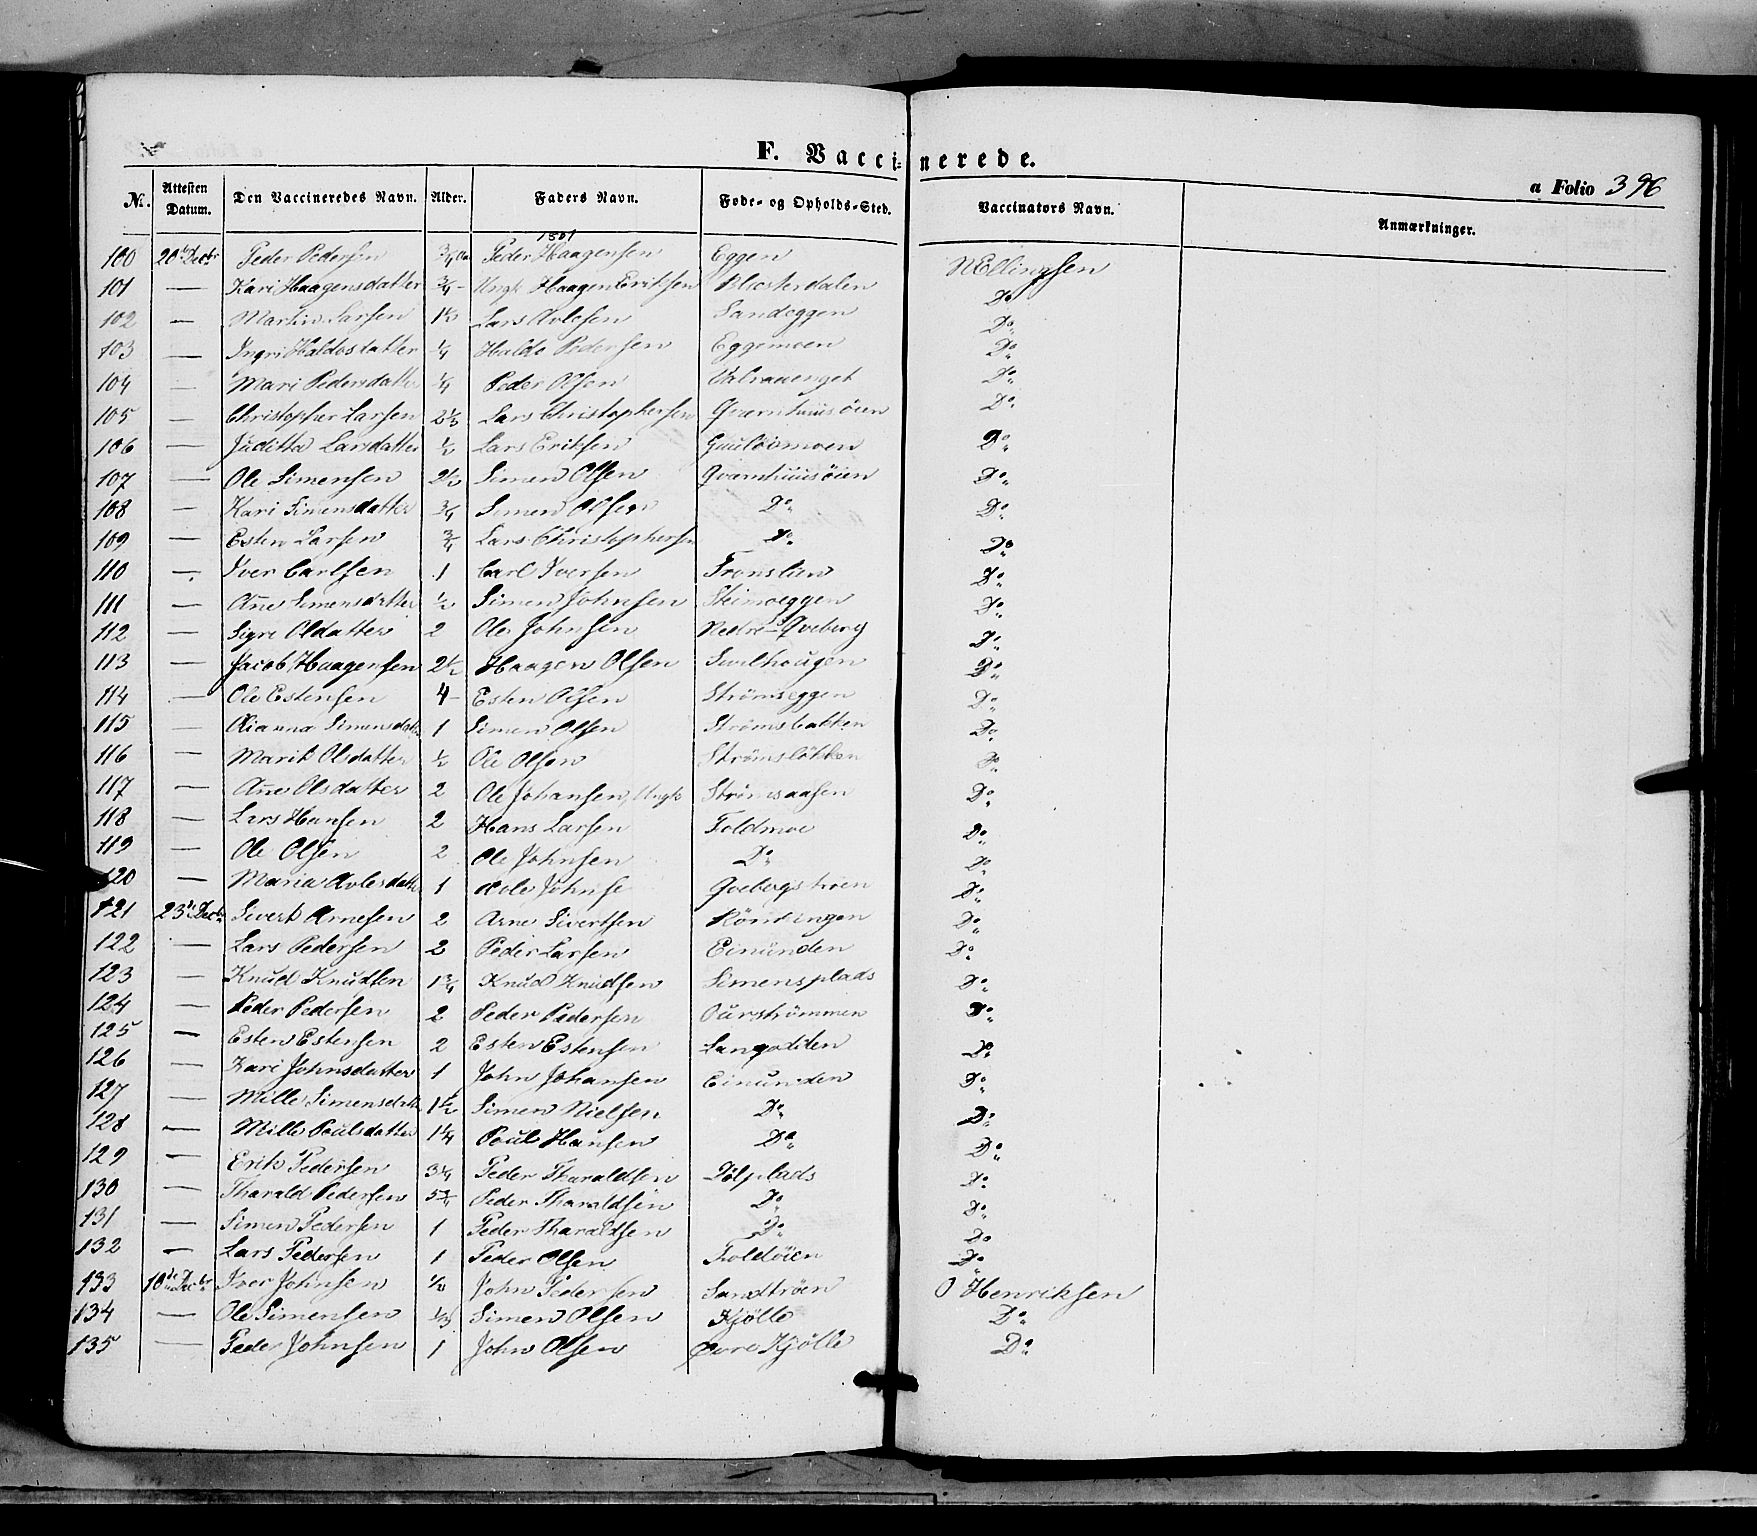 F. Vaccinerede.
a Folio 396
No. Attesten Datum. Den Vaccineredes Navn. Alder. Faders Navn. Føde- og Opholds-Sted. Vaccinators Navn. Anmærkninger.
100 20de Decbr Peder Pedersen 3/4 Peder Haagensen Eggen NEllingsen
101 — Kari Haagensdatter 3/4 Ungk Haagen Eriksen Klosterdalen Do
102 — Larsen Lars Sandeggen Do
103 — Ingri Haldosdatter 1/4 Haldo Pedersen Eggemoen Do
104 — Mari Pedersdatter 1/4 Peder Olsen Do
105 — Christopher Larsen 2 1/2 Lars Christophersen Qvernhuusöien Do
106 — Juditha Larsdatter 1/2 Lars Eriksen Do
107 — Ole Simensen 2 1/2 Simen Olsen Qvernhuusöien Do
108 — Kari Simensdatter 3/4 Simen Olsen Do Do
109 — Esten Larsen 3/4 Lars Christophersen Do Do
110 — Iver Carlsen 1 Carl Iversen Tronslien Do
111 — Ane Simensdatter 1/2 Simen Johnsen Steimoeggen Do
112 — Sigri Oldatter 2 Ole Johnsen Nedre-Qveberg Do
113 — Jacob Haagensen 2 1/2 Haagen Olsen Do
114 — Ole Estensen 4 Esten Olsen Strömseggen Do
115 — Simensdatter 1 Simen Olsen Strömsbakken Do
116 — Marit Olsdatter 1/2 Ole Olsen Strömsløkken Do
117 — Ane Olsdatter 2 Ole Johansen, Ungk Strömsaasen Do
118 — Lars Hansen 2 Hans Larsen Foldmoe Do
119 — Ole Olsen 2 Ole Johnsen Do Do
120 — Maria 1 Johnse Do
121 23de Decbr Sivert Arnesen 2 Arne Sivertsen Röndningen Do
122 — Lars Pedersen 2 Peder Larsen Einunden Do
123 — Knud Knudsen 1 3/4 Knud Knudsen Simensplads Do
124 — Peder Pedersen 2 Peder Pedersen Do
125 — Esten Estensen 2 Esten Estensen Do
126 — Kari Johnsdatter 1 John Johansen Einunden Do
127 — Mille Simensdatter 1 1/2 Simen Nielsen Do Do
128 — Mille Poulsdatter 1 1/4 Poul Hansen Do Do
129 — Erik Pedersen 3 1/4 Peder Tharaldsen Dölplads Do
130 — Tharald Pedersen Peder Tharaldsen Do Do
131 — Simen Pedersen 1 Peder Tharaldsen Do Do
132 — Lars Pedersen 1 Peder Olsen Foldöien Do
133 10de Decbr Iver Johnsen 1/2 John Pedersen Sandtröen O Henriksen
134 — Ole Simensen 1/3 Simen Olsen Kjölle Do
135 — Peder Johnsen 1 John Olsen Øvre Kjölle Do